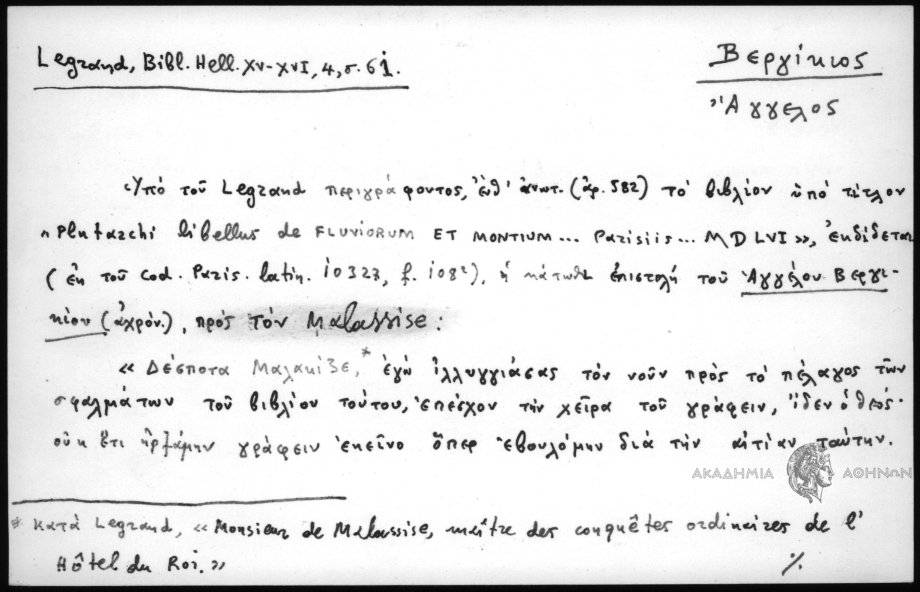 Legrand, Bibl. Hell. XV-XVI, 4, σ. 61.
Βεργίκιος
Ἄγγελος
Ὑπό τοῦ Legrand περιγράφοντος, ἐνθ' ἀνωτ. (ἀρ. 582) τό βιβλίον ὑπό τίτλον
"Plutarchi libellus de FLUVIORUM ET MONTIUM... Parisiis... MDLVI», ἐκδίδεται
(ἐκ τοῦ Cod. Paris. latin. 10327, f. 108²), ἡ κάτωθι ἐπιστολή τοῦ Ἀγγέλου Βεργι-
κίου (ἀχρόν.), πρός τόν Malassise:
«Δέσποτα Μαλακίζε,* ἐγώ ἰλλυγγιάσας τόν νοῦν πρός τό πέλαγος τῶν
σφαλμάτων τοῦ βιβλίου τούτου, ἐπέσχον τήν χεῖρα τοῦ γράφειν, ἴδεν ὁ θεός·
οὐκ ἔτι ἠρξάμην γράφειν ἐκεῖνο ὅπερ ἐβουλόμην διά τήν αἰτίαν ταύτην.
ΑΚΑΔΗΜΙΑ ΑΘΗΝΩΝ
* Κατά Legrand, «Monsieur de Malassise, maître des conquêtes ordinaires de l'
Hôtel du Roi.»
%.